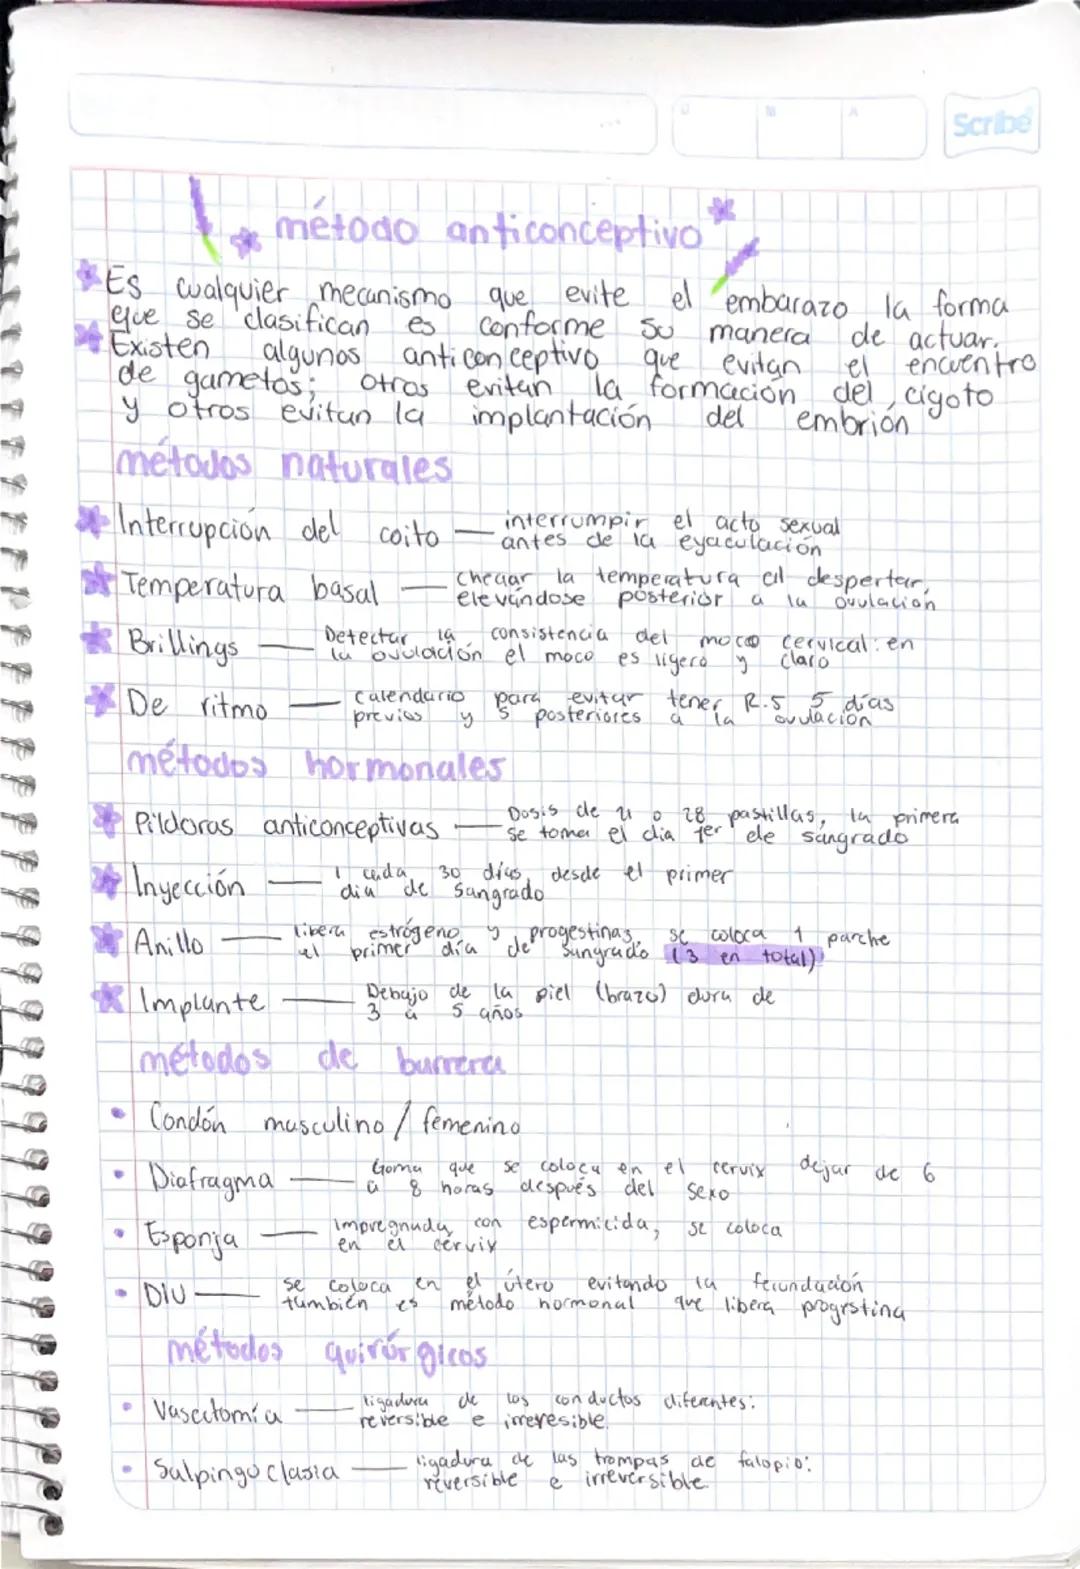 D M A
Scribe
método anticonceptivo
Es cualquier mecanismo que evite el embarazo la forma
que se clasifican es conforme su manera de actuar.
Existen algunos anticonceptivo que evitan el encuentro
de gametos; otros evitan la formación del cigoto
y otros evitan la implantación del embrión
métodos naturales
Interrupción del coito — interrumpir el acto sexual
antes de la eyaculación
Temperatura basal — Checar la temperatura al despertar,
elevándose posterior a la ovulación
Brillings — Detectar la consistencia del moco cervical: en
la ovulación el moco es ligero y claro
De ritmo — Calendario para evitar tener R.S 5 días
previos y 5 posteriores a la ovulación
métodos hormonales
Pildoras anticonceptivas — Dosis de 21 o 28 pastillas, la primera
se toma el dia 1er de sangrado
Inyección — 1 cada 30 días, desde el primer
dia de sangrado
Anillo — libera estrógeno y progestinas, se coloca 1 parche
el primer día de sangrado (3 en total)
Implante — Debajo de la piel (brazo) dura de
3 a 5 años
métodos de barrera
Condón masculino / femenino
Diafragma — Goma que se coloca en el cervix dejar de 6
a 8 horas después del sexo
Esponja — Impregnada con espermicida, se coloca
en el cérvix
DIU — se coloca en el útero evitando la fecundación
también es método hormonal que libera progrstina
métodos quirúrgicos
Vasectomía — ligadura de los conductos diferentes:
reversible e irreresible.
Salpingoclasia — ligadura de las trompas de falopio:
reversible e irreversible.